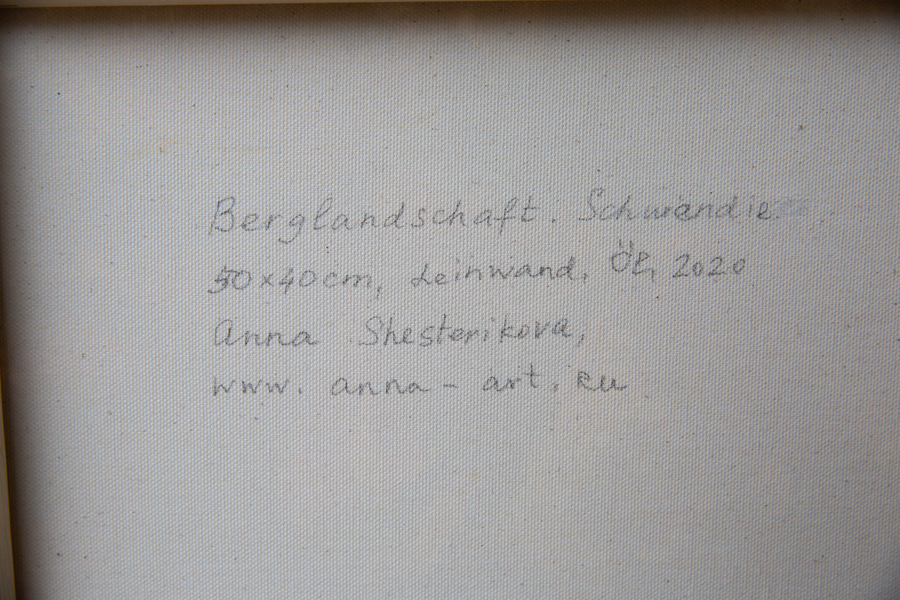 Berglandschaft. Schwandie
50x40cm, Leinwand, Öl, 2020
Anna Shesterikova,
www.anna-art.ru